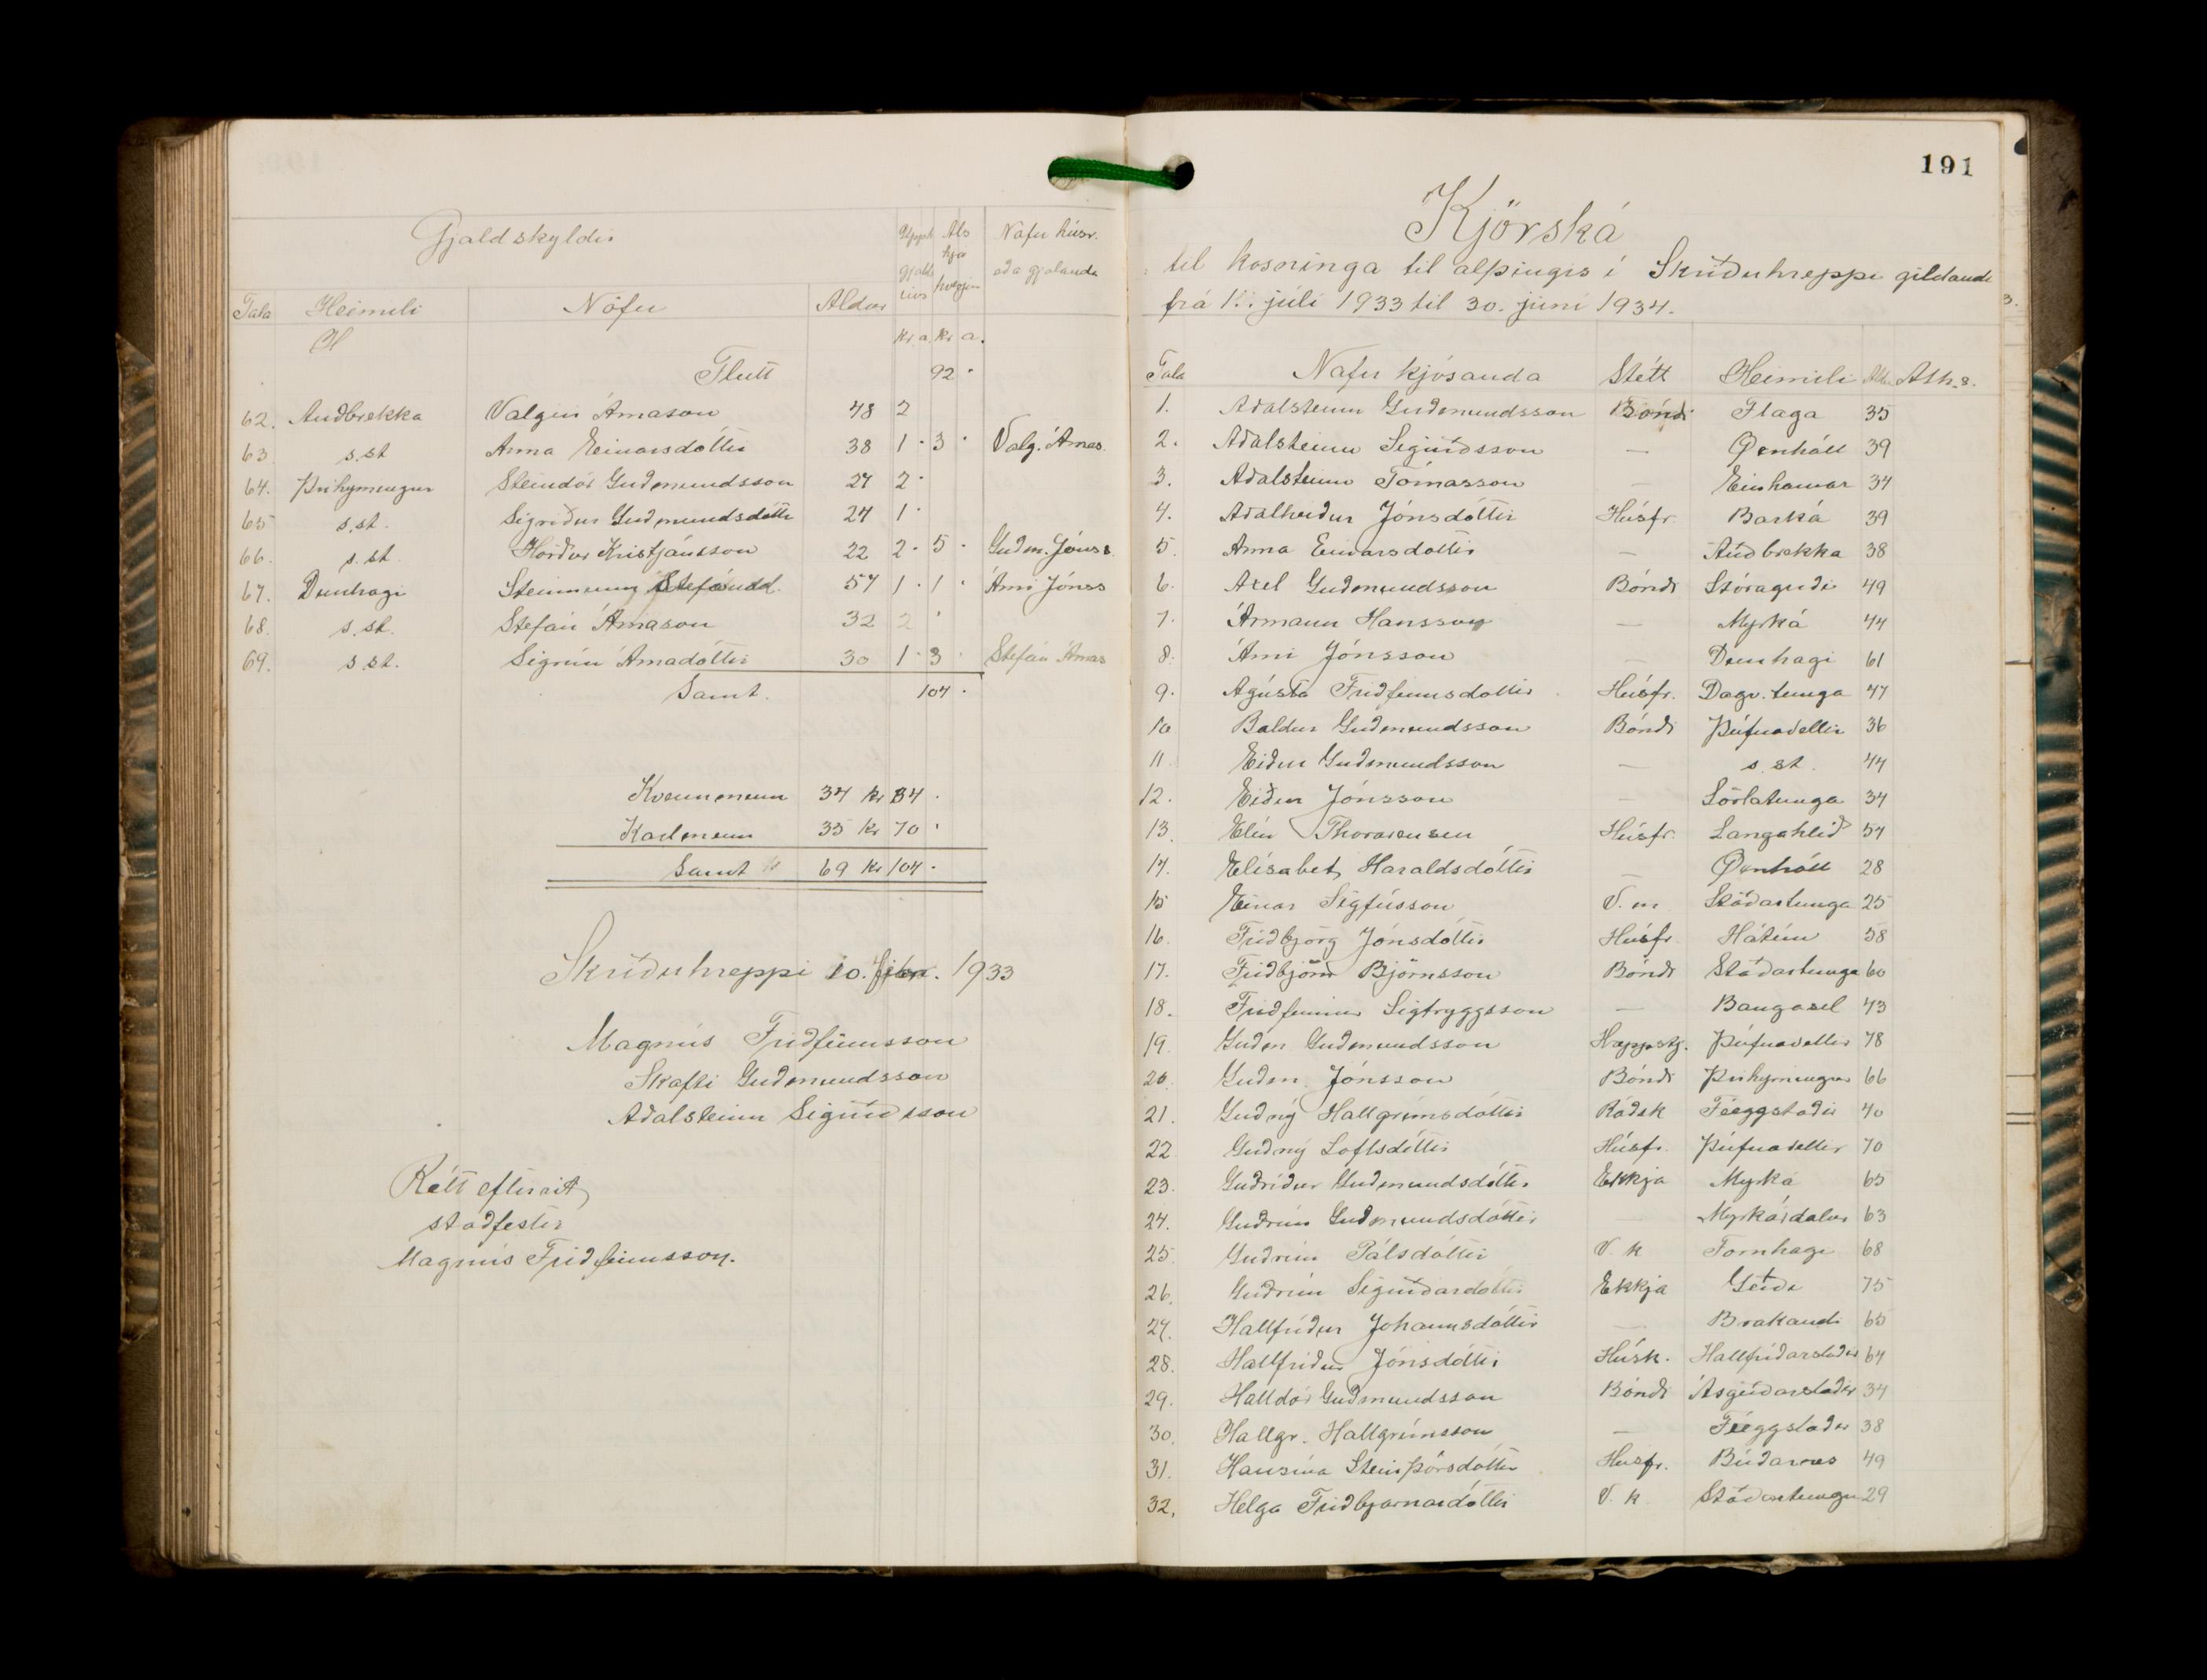 Gjaldskyldir
Upph. gjalds eins
Als hjá hverjum
Nafn húsr. eða gjalanda
Tala Heimili Nöfn Aldur
kr. a. kr a.
Flutt 92 ·
62. Auðbrekka Valgeir Árnason 48 2
63. s.st Anna Einarsdóttir 38 1 · 3 · Valg. Árnas.
64. Þríhyrningur Steindór Guðmundsson 27 2 ·
65 s.st. Sigríður Guðmundsdóttir 24 1 ·
66. s.st. Hörður Kristjánsson 22 2 · 5 · Guðm. Jónss.
67. Dunhagi Steinunn Stefánsd. 57 1 · 1 · Árni Jónss
68. s.st. Stefán Árnason 32 2 ·
69. s.st. Sigrún Árnadóttir 30 1 · 3 · Stefán Árnas
Samt. 104 ·
Kvennmenn 34 kr 34 ·
Karlmenn 35 kr 70 ·
Samt 69 kr 104 ·
Skriðuhreppi 10. febr. 1933
Magnús Friðfinnsson
Skafti Guðmundsson
Aðalsteinn Sigurðsson
Rétt eftirrit
staðfestir
Magnús Friðfinnsson.
191
Kjörská
til kosninga til alþingis í Skriðuhreppi gildandi
frá 1. júlí 1933 til 30. júní 1934.
Tala Nafn kjósanda Stétt Heimili Ald. Ath.s.
1. Aðalsteinn Guðmundsson Bóndi Flaga 35
2. Aðalsteinn Sigurðsson — Öxnhóll 39
3. Aðalsteinn Tómasson — Einhamar 34
4. Aðalheiður Jónsdóttir Húsfr. Barká 39
5. Anna Einarsdóttir — Auðbrekka 38
6. Axel Guðmundsson Bóndi Stóragerði 49
7. Ármann Hansson — Myrká 44
8. Árni Jónsson — Dunhagi 61
9. Ágústa Friðfinnsdóttir Húsfr. Dagv.tunga 47
10 Baldur Guðmundsson Bóndi Þúfnavellir 36
11. Eiður Guðmundsson — s.st. 44
12. Eiður Jónsson — Sörlatunga 34
13. Elín Thorarensen Húsfr. Langahlíð 54
14. Elísabet Haraldsdóttir — Öxnhóll 28
15 Einar Sigfússon V. m. Staðartunga 25
16. Friðbjörg Jónsdóttir Húsfr. Hátún 58
17. Friðbjörn Björnsson Bóndi Staðartunga 60
18. Friðfinnur Sigtryggsson — Baugasel 43
19. Guðm. Guðmundsson Hreppstj. Þúfnavellir 78
20. Guðm. Jónsson Bóndi Þríhyrningur 66
21. Guðný Hallgrímsdóttir Ráðsk Féeggstaðir 40
22 Guðný Loftsdóttir Húsfr. Þúfnavellir 70
23. Guðríður Guðmundsdóttir Ekkja Myrká 65
24. Guðrún Guðmundsdóttir — Myrkárdalur 63
25. Guðrún Pálsdóttir V. k Fornhagi 68
26. Guðrún Sigurðardóttir Ekkja Gerði 75
27. Hallfríður Jóhannsdóttir — Brakandi 65
28. Hallfríður Jónsdóttir Húsk. Hallfríðarstaðir 64
29. Halldór Guðmundsson Bóndi Ásgerðarstaðir 34
30. Hallgr. Hallgrímsson — Féeggstaðir 38
31. Hansína Steinþórsdóttir Húsfr. Búðarnes 49
32. Helga Friðbjarnardóttir V. k. Staðartunga 29